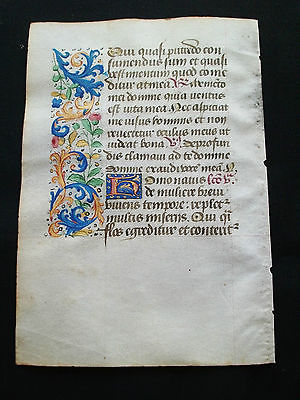 Qui quasi putredo con
sumendus sum et quasi
vestimentum quod come
ditur a tinea. R. Memento
mei domine quia ventus
est vita mea. Nec aspiciat
me visus hominis et non
revertetur oculus meus ut
videat bona. V. De profun
dis clamavi ad te domine
domine exaudi voce mea. N
Homo natus
de muliere brevi
vivens tempore: replet
multis miseriis. Qui qi
flos egreditur et conterit